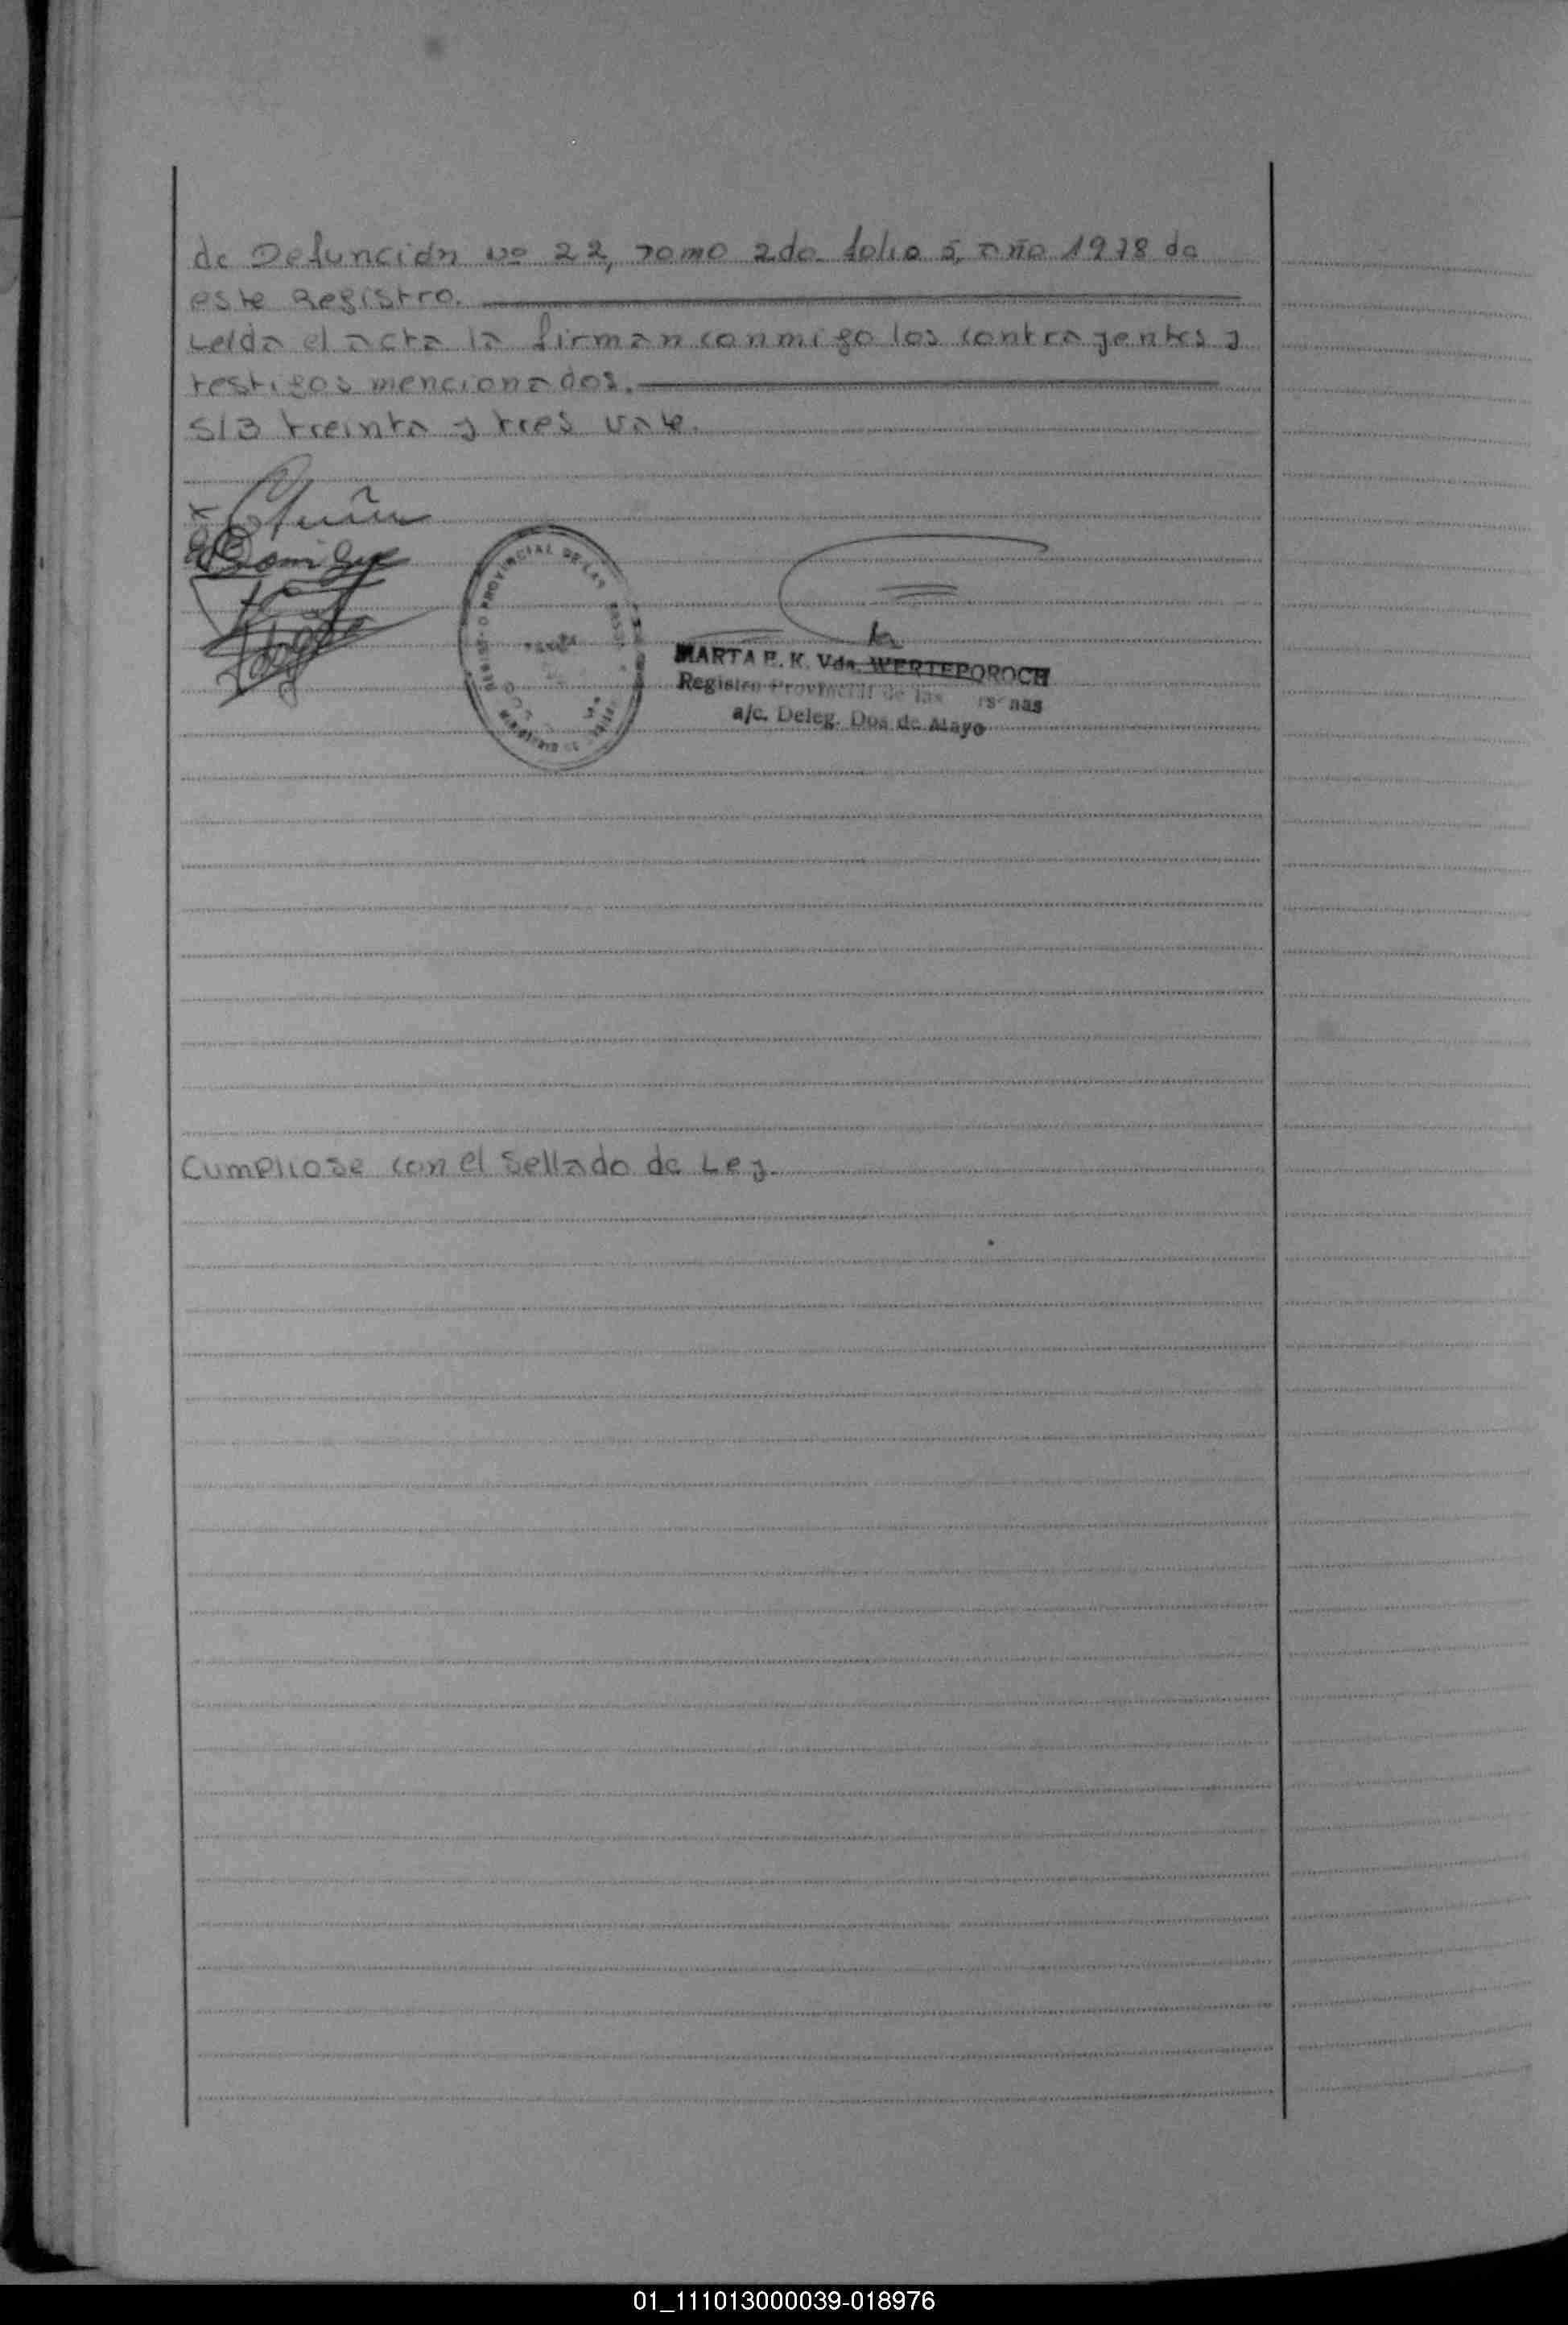 de Defunción nº 22, Tomo 2do folio 5, año 1978 de
este Registro.
Leída el acta la firman conmigo los contrayentes y
testigos mencionados.
S/B treinta y tres vale.
PROVINCIAL DE LAS
MARTA E. K. Vda. WERTEPOROCH
Registro Provincial de las
a/c. Deleg. Dos de Mayo
Cumpliose con el Sellado de Ley.
01_111013000039-018976